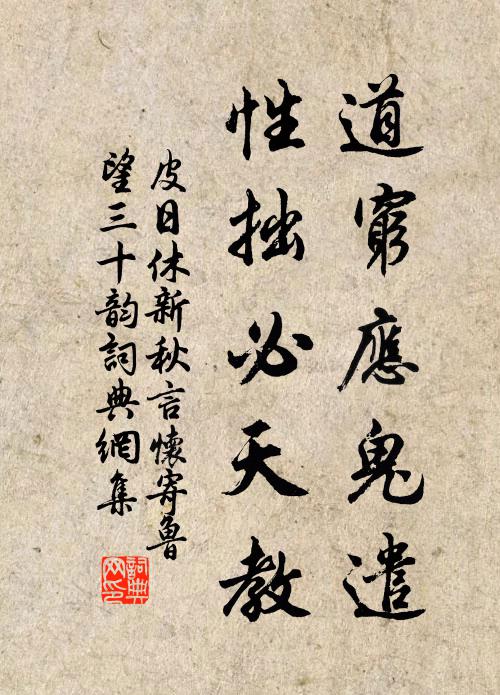 道窮應鬼遣
性拙必天教
皮日休新秋言懷寄魯
望三十韵詞典網集
詞典
网印